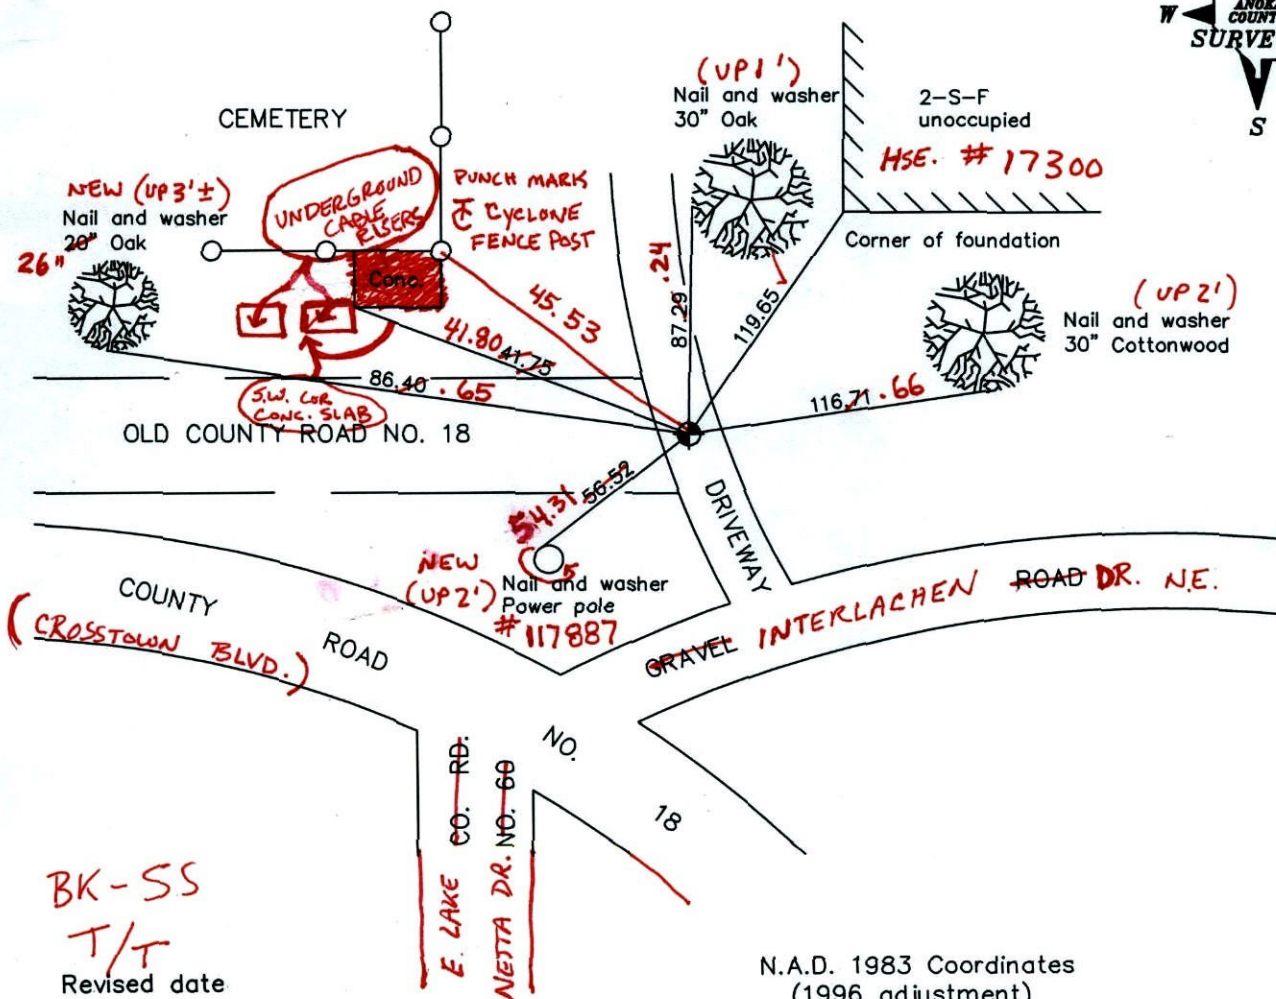 W
ANOKA
COUNTY
SURVE
S
(UP 1')
Nail and washer
30" Oak
2-S-F
unoccupied
HSE. # 17300
CEMETERY
NEW (UP 3'±)
Nail and washer
20" Oak
26"
UNDERGROUND
CABLE
RISERS
PUNCH MARK
℄ CYCLONE
FENCE POST
Corner of foundation
Conc.
45.53
87.29 .24
119.65 ✓
(UP 2')
Nail and washer
30" Cottonwood
41.80 41.75
86.40 .65
116.71 .66
S.W. COR
CONC. SLAB
OLD COUNTY ROAD NO. 18
54.31 56.52
DRIVEWAY
NEW
(UP 2')
Nail and washer
Power pole
# 117887
COUNTY ROAD NO. 18
(CROSSTOWN BLVD.)
GRAVEL INTERLACHEN ROAD DR. N.E.
CO. RD.
NO. 60
E. LAKE
NETTA DR.
BK-55
T/T
Revised date
N.A.D. 1983 Coordinates
(1996 adjustment)